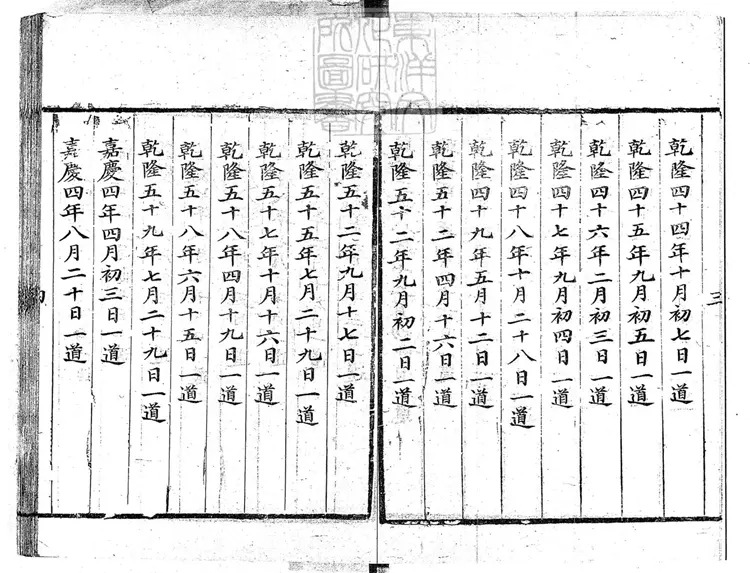 三
乾隆四十四年十月初七日一道
乾隆四十五年九月初五日一道
乾隆四十六年二月初三日一道
乾隆四十七年九月初四日一道
乾隆四十八年十月二十八日一道
乾隆四十九年五月十二日一道
乾隆五十二年四月十六日一道
乾隆五十二年九月初二日一道
乾隆五十二年九月十七日一道
乾隆五十五年七月二十九日一道
乾隆五十七年十月十六日一道
乾隆五十八年四月十九日一道
乾隆五十八年六月十五日一道
乾隆五十九年七月二十九日一道
嘉慶四年四月初三日一道
嘉慶四年八月二十日一道